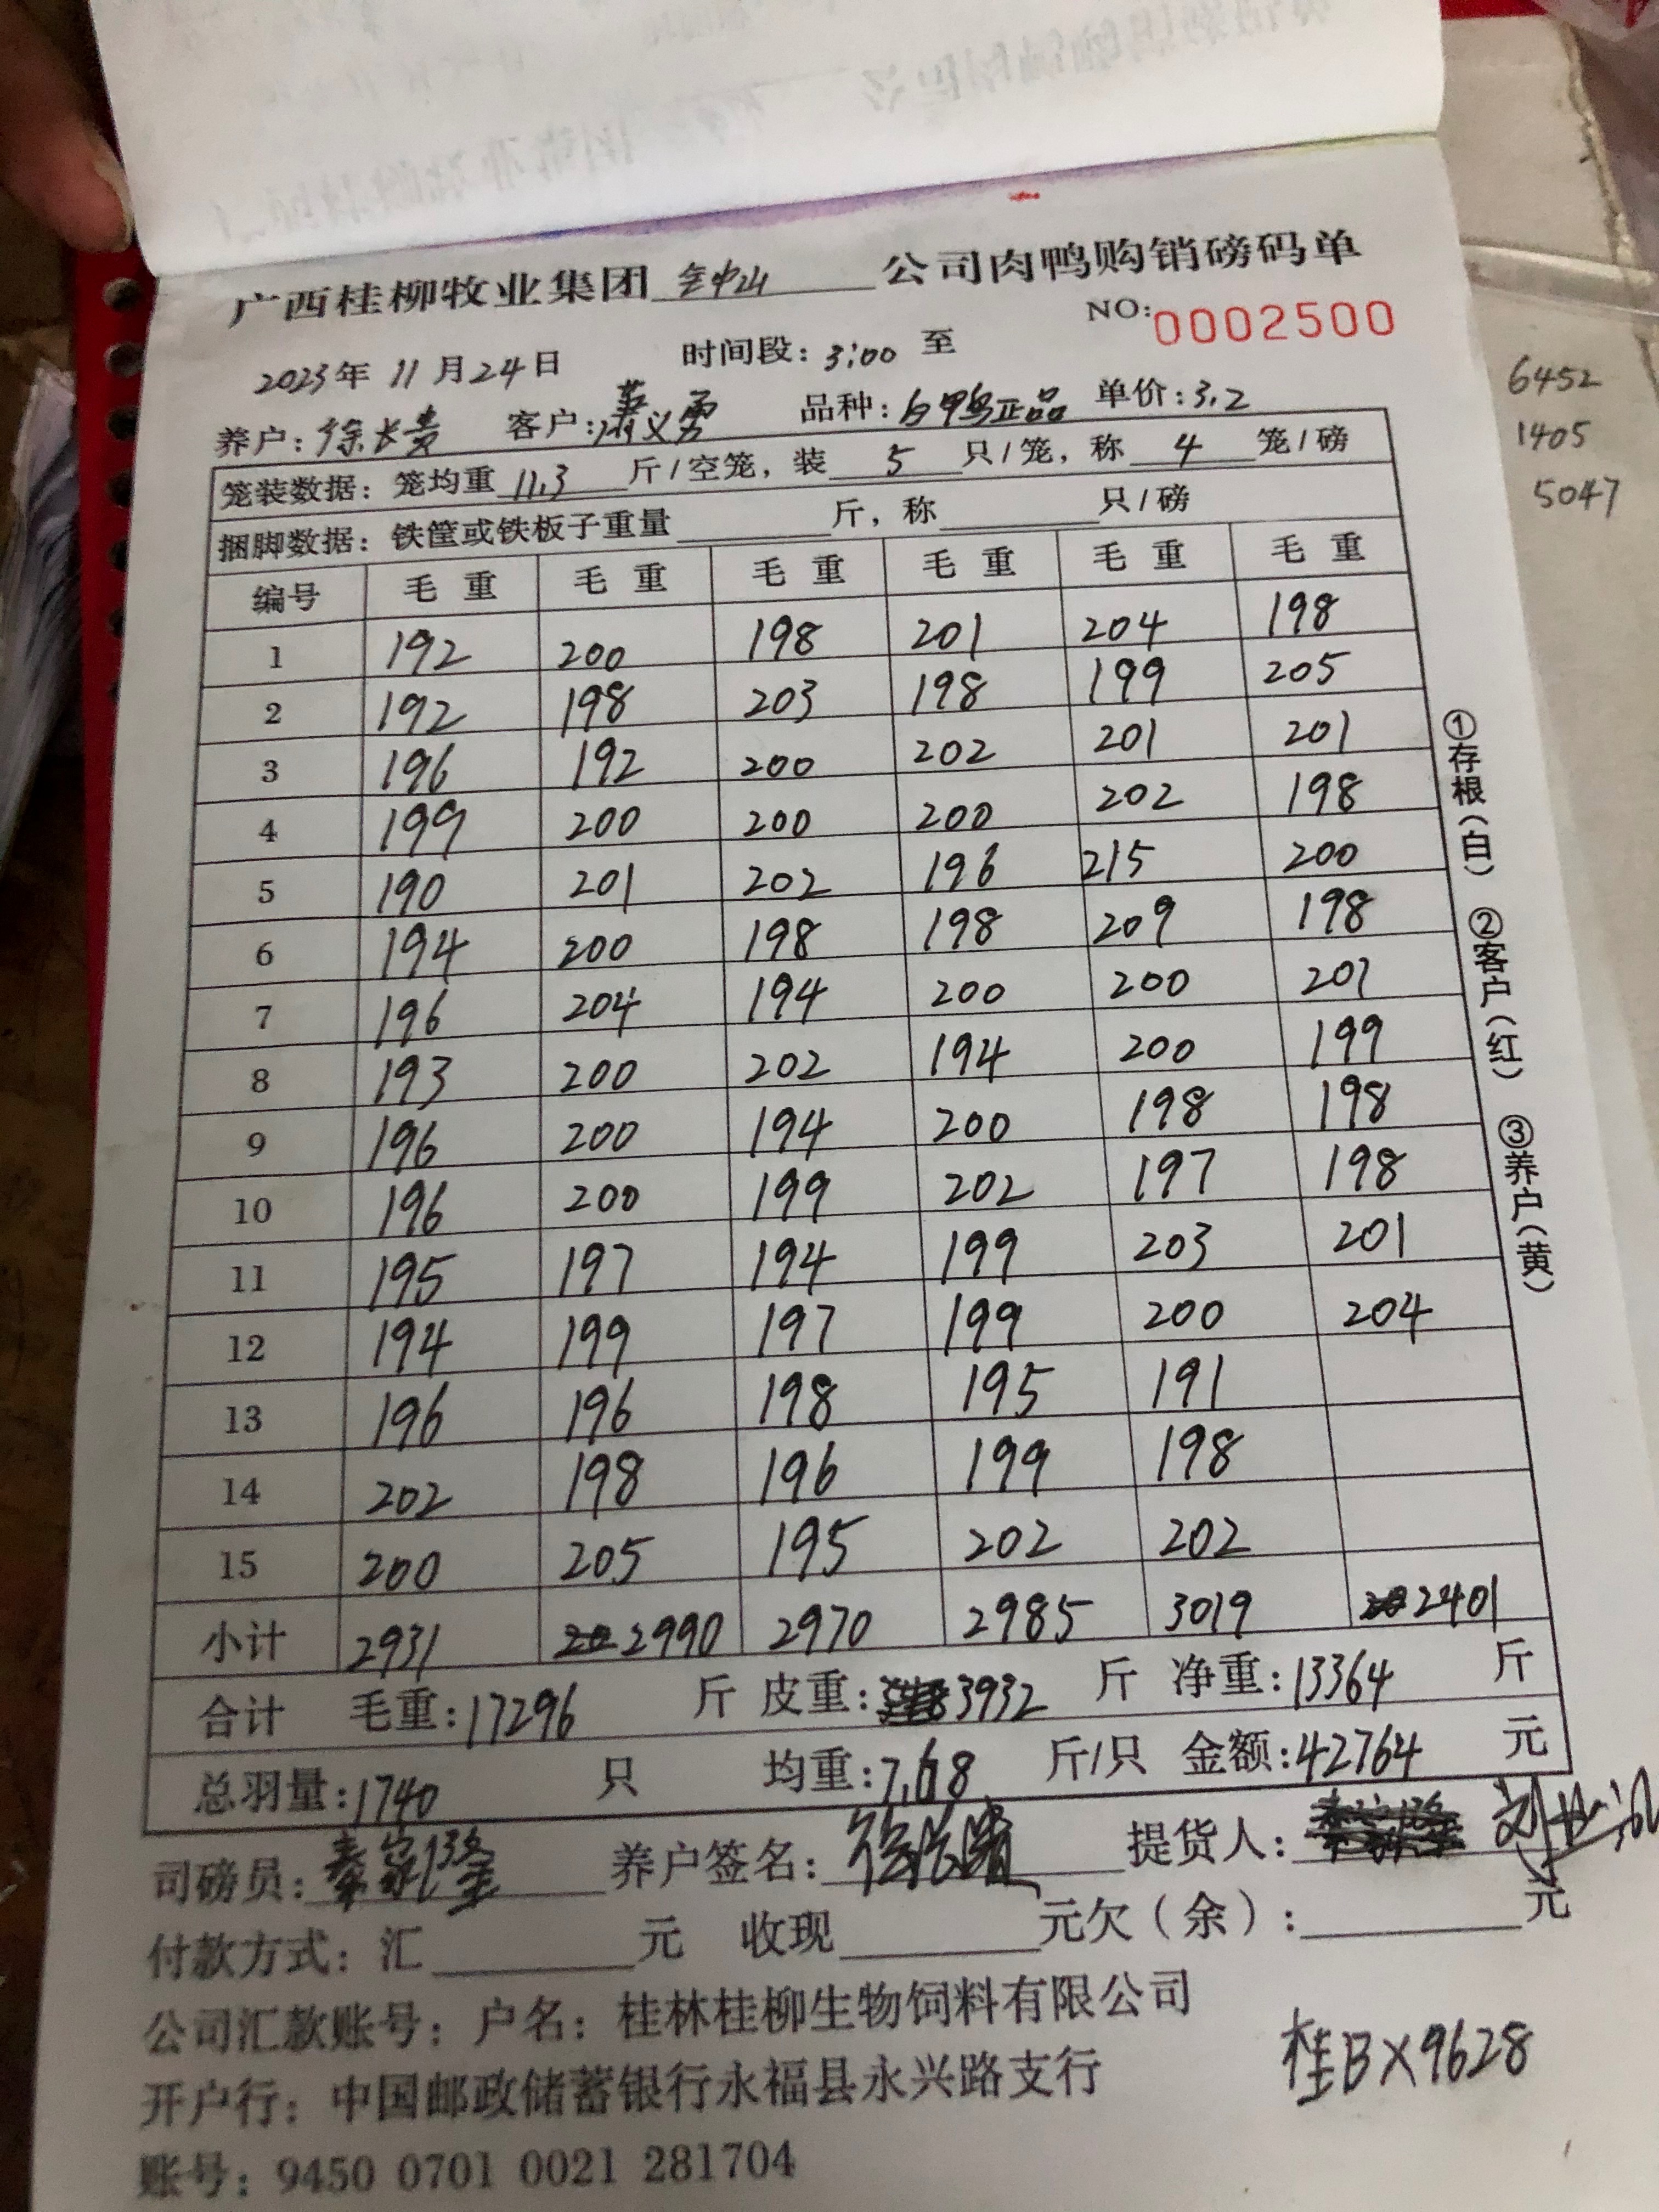 广西桂柳牧业集团 金中山 公司肉鸭购销磅码单
NO:0002500
2023年 11月24日 时间段:3:00 至
养户:徐长贵 客户:萧义勇 品种:白鸭正品 单价:3.2
笼装数据:笼均重 11.3 斤/空笼,装 5 只/笼,称 4 笼/磅
捆脚数据:铁筐或铁板子重量 斤,称 只/磅
编号 毛重 毛重 毛重 毛重 毛重 毛重
1 192 200 198 201 204 198
2 192 198 203 198 199 205
3 196 192 200 202 201 201
4 199 200 200 200 202 198
5 190 201 202 196 215 200
6 194 200 198 198 209 198
7 196 204 194 200 200 201
8 193 200 202 194 200 199
9 196 200 194 200 198 198
10 196 200 199 202 197 198
11 195 197 194 199 203 201
12 194 199 197 199 200 204
13 196 196 198 195 191
14 202 198 196 199 198
15 200 205 195 202 202
小计 2931 2990 2970 2985 3019 2401
合计 毛重:17296 斤 皮重:3932 斤 净重:13364 斤
总羽量:1740 只 均重:7.68 斤/只 金额:42764 元
司磅员:秦家隆 养户签名: 提货人:
付款方式:汇 元 收现 元欠(余): 元
公司汇款账号:户名:桂林桂柳生物饲料有限公司
开户行:中国邮政储蓄银行永福县永兴路支行
账号:9450 0701 0021 281704
桂BX9628
①存根(白) ②客户(红) ③养户(黄)
6452
1405
5047